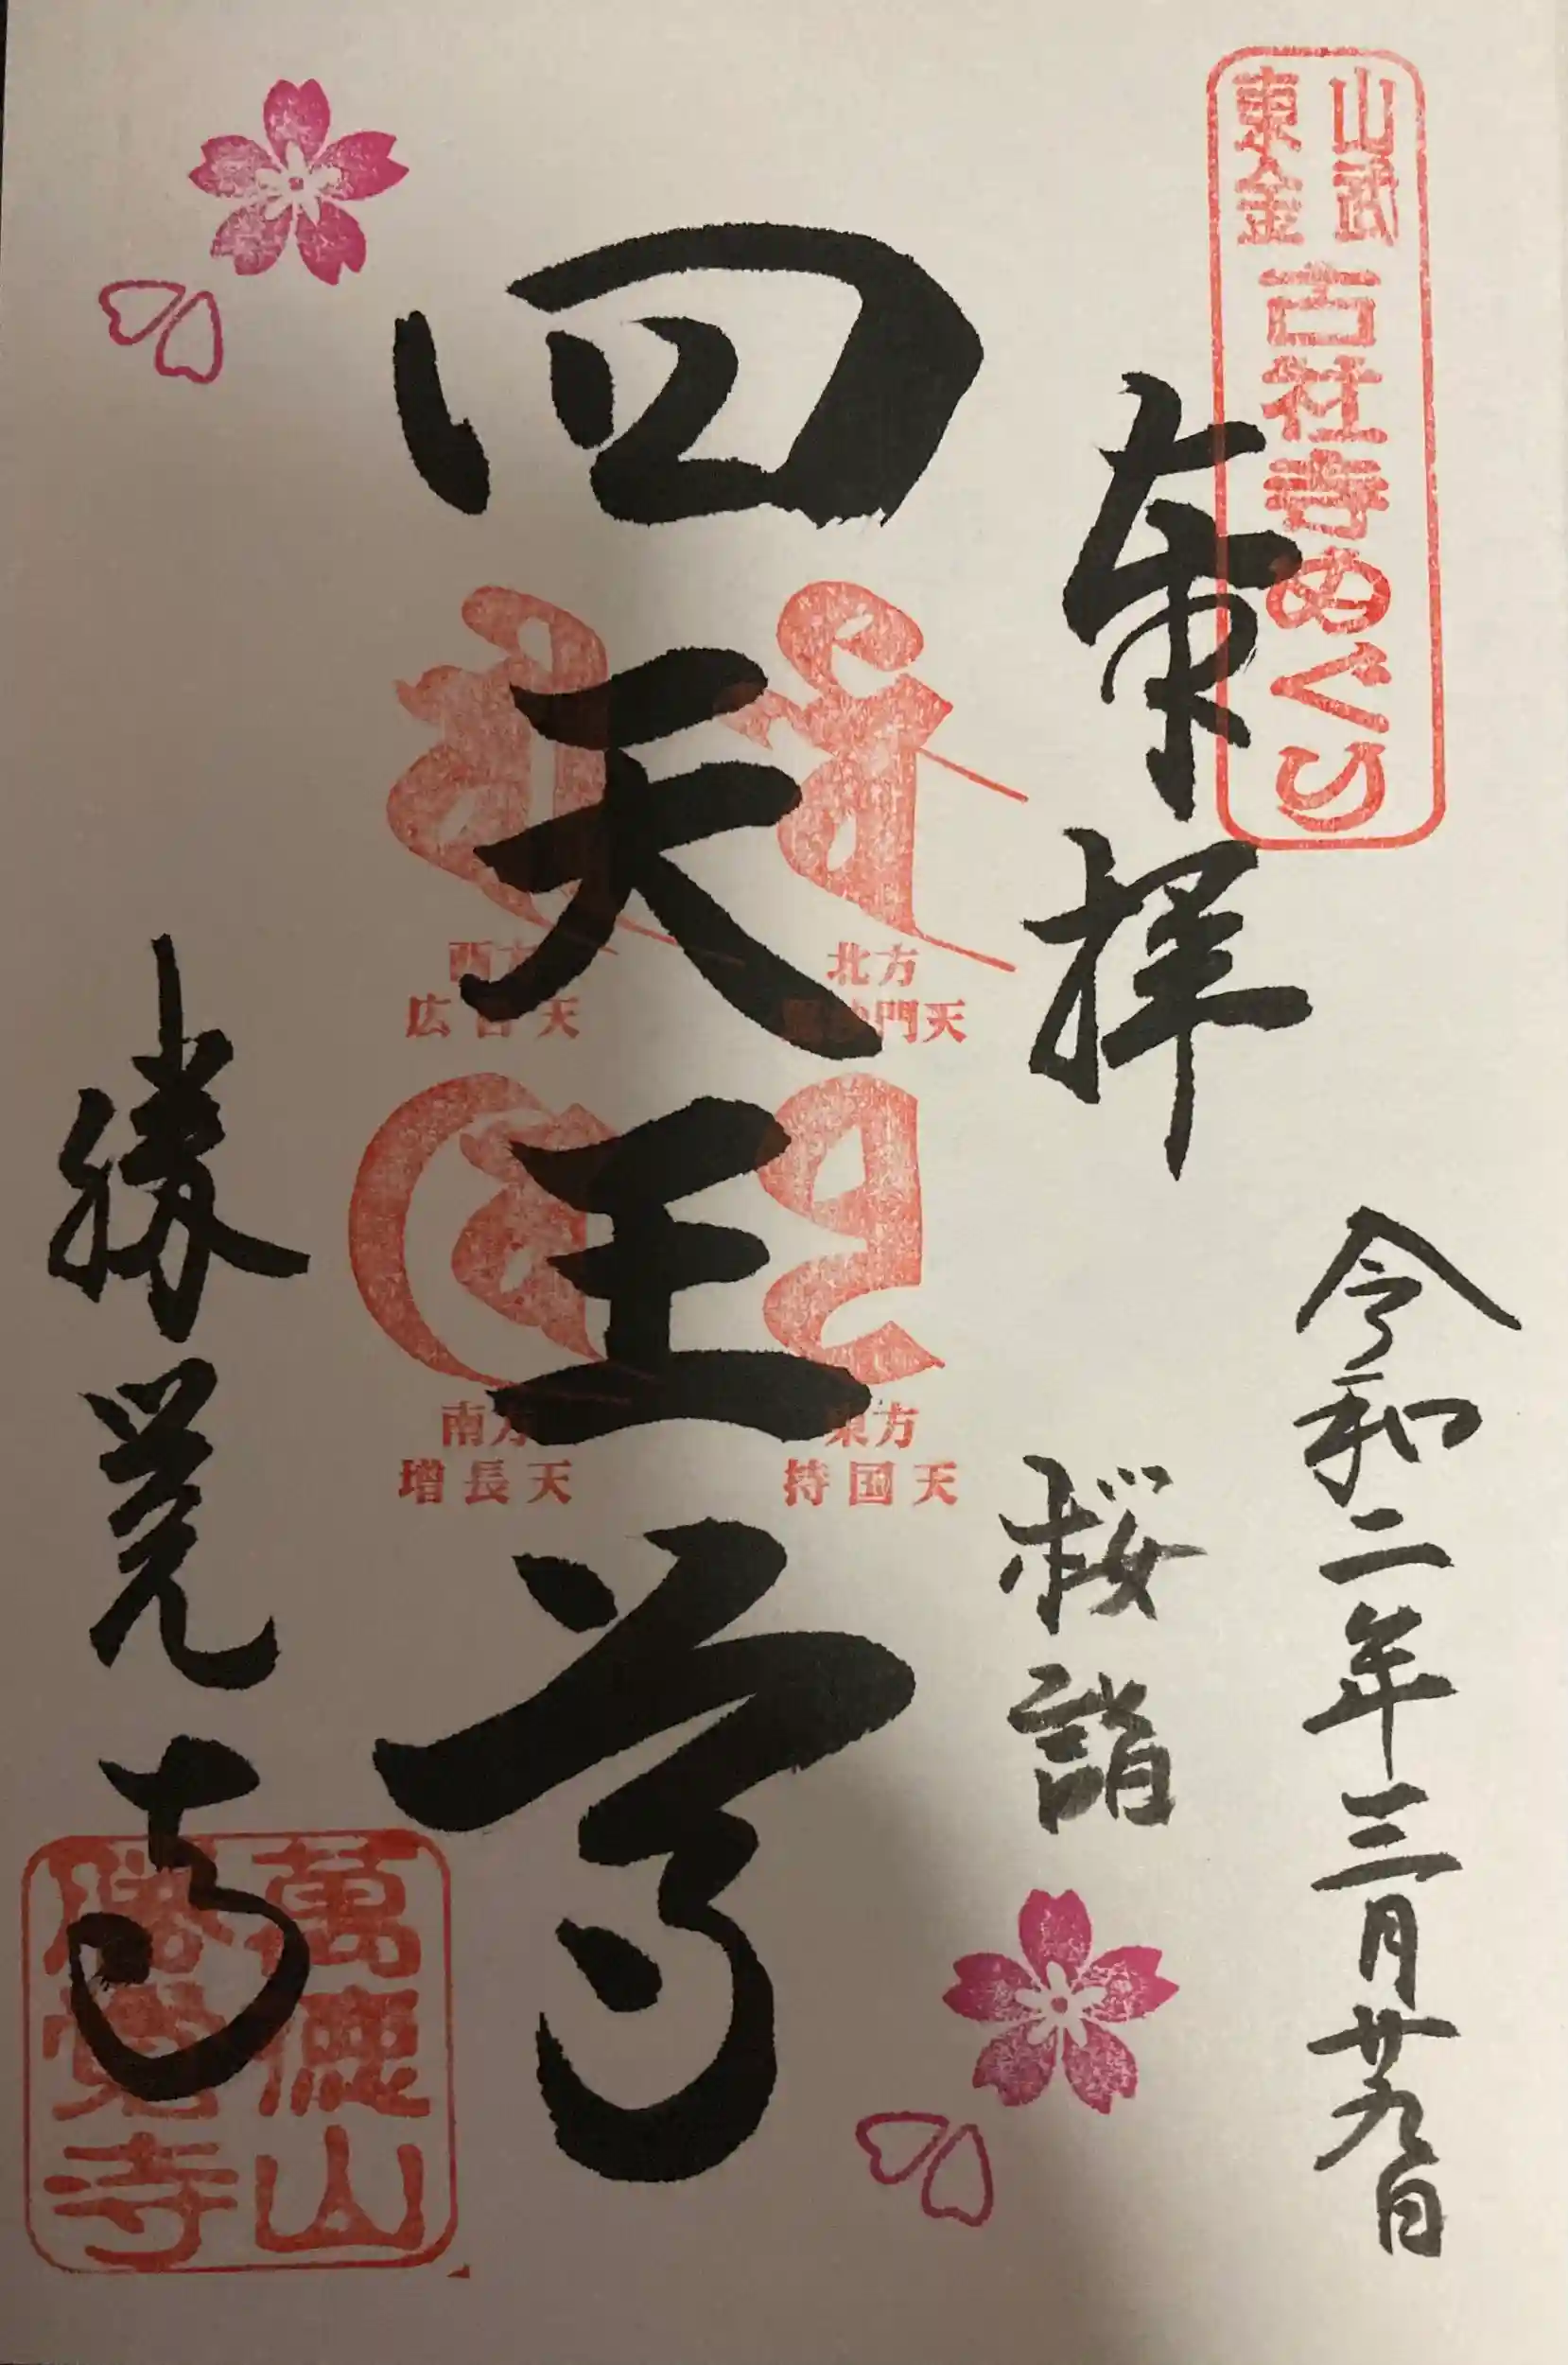 山武
東金
古社寺めぐり
奉拝
令和二年三月廿九日
桜詣
四天王尊
北方
毘沙門天
西方
広目天
東方
持国天
南方
増長天
勝覚寺
萬徳山
勝覚寺